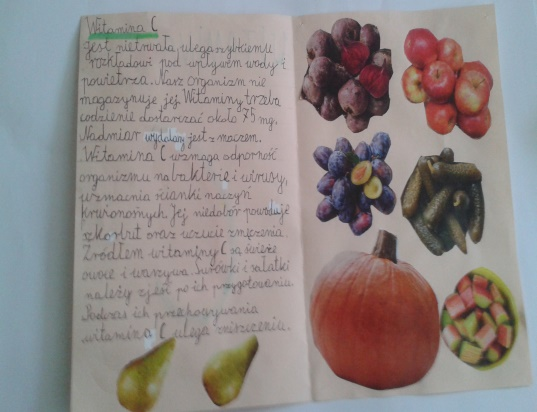 Witamina C
jest nietrwała, ulega szybkiemu
rozkładowi pod wpływem wody i
powietrza. Nasz organizm nie
magazynuje jej. Witaminy trzeba
codzienie dostarczać około 75 mg.
Nadmiar wydalany jest z moczem.
Witamina C wzmaga odporność
organizmu na bakterie i wirusy,
wzmacnia ścianki naczyń
krwionośnych. Jej niedobór powoduje
szkorbut oraz uczucie zmęczenia.
Źródłem witaminy C są świeże
owoce i warzywa. Surówki i sałatki
należy zjeść po ich przygotowaniu.
Podczas ich przechowywania
witamina C ulega zniszczeniu.